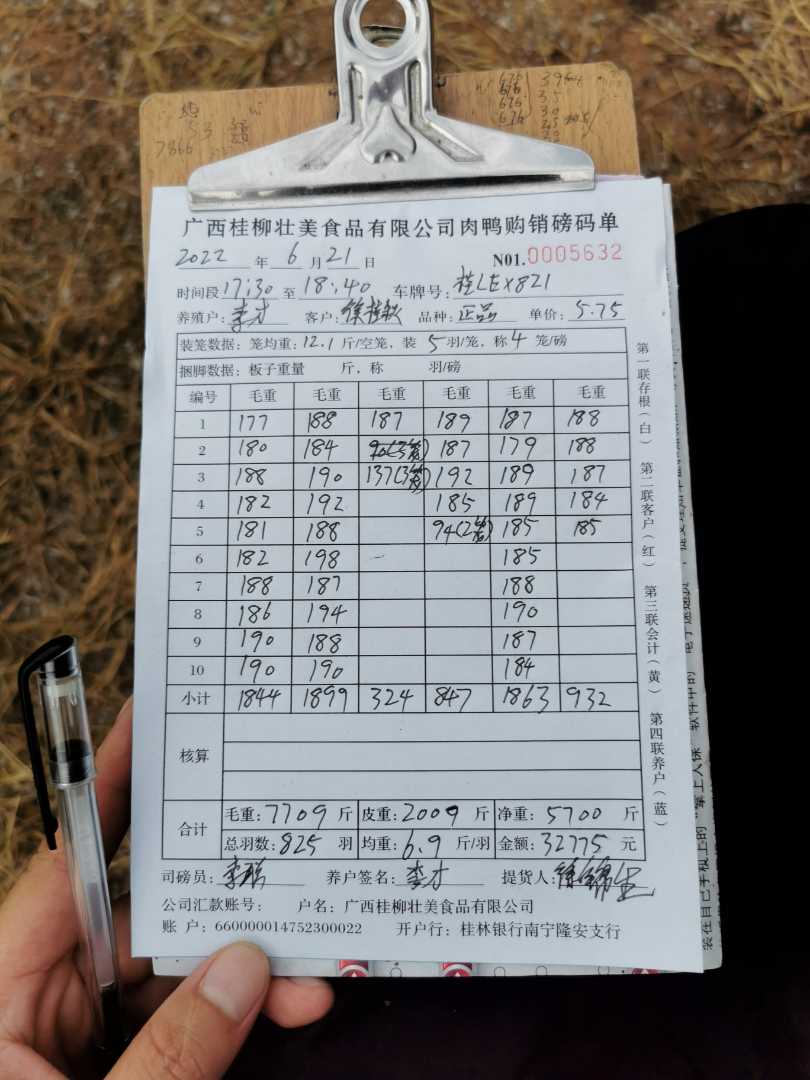 7866
676 3964
676 35
676 30
676 25
广西桂柳壮美食品有限公司肉鸭购销磅码单
2022 年 6 月 21 日 N01.0005632
时间段 17:30 至 18:40 车牌号: 桂LEX821
养殖户: 李才 客户: 徐桂秋 品种: 正品 单价: 5.75
装笼数据: 笼均重: 12.1 斤/空笼, 装 5 羽/笼, 称 4 笼/磅
捆脚数据: 板子重量 斤, 称 羽/磅
编号 毛重 毛重 毛重 毛重 毛重 毛重
1 177 188 187 189 187 188
2 180 184 90(3笼) 187 179 188
3 188 190 137(3笼) 192 189 187
4 182 192 185 189 184
5 181 188 94(2笼) 185 185
6 182 198 185
7 188 187 188
8 186 194 190
9 190 188 187
10 190 190 184
小计 1844 1899 324 847 1863 932
核算
合计 毛重: 7709 斤 皮重: 2009 斤 净重: 5700 斤
总羽数: 825 羽 均重: 6.9 斤/羽 金额: 32775 元
司磅员: 李联 养户签名: 李才 提货人: 徐锦生
公司汇款账号: 户名: 广西桂柳壮美食品有限公司
账 户: 660000014752300022 开户行: 桂林银行南宁隆安支行
第一联存根(白) 第二联客户(红) 第三联会计(黄) 第四联养户(蓝)
装在自己手板上的“掌上人保”软件中的